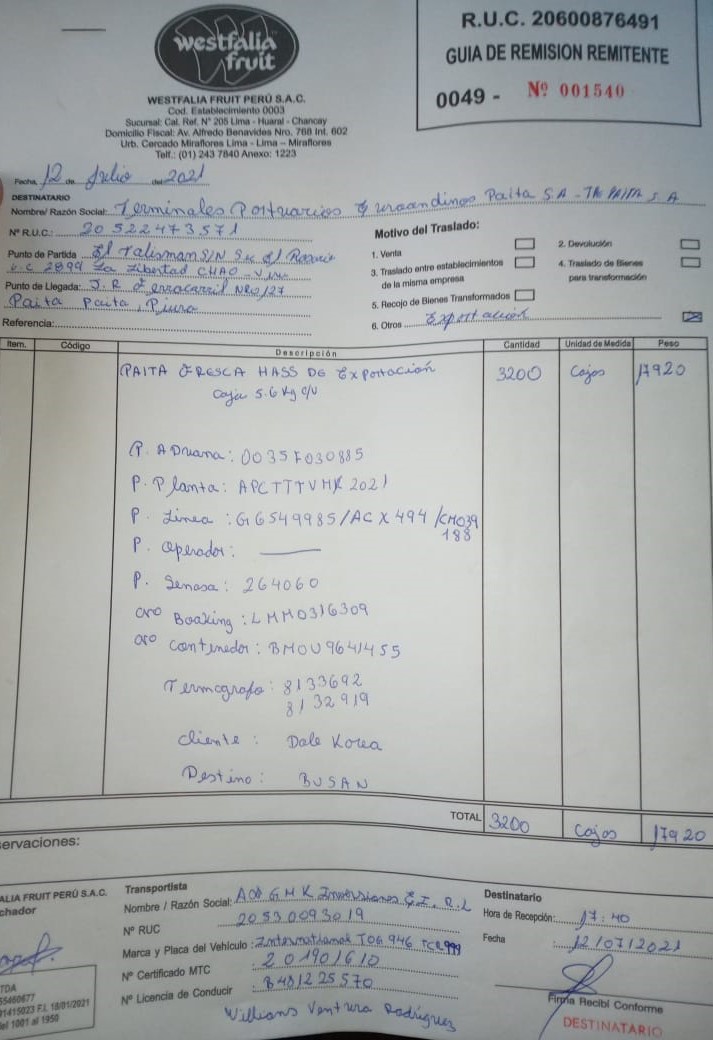 westfalia
fruit
WESTFALIA FRUIT PERÚ S.A.C.
Cod. Establecimiento 0003
Sucursal: Cal. Ref. N° 205 Lima - Huaral - Chancay
Domicilio Fiscal: Av. Alfredo Benavides Nro. 768 Int. 602
Urb. Cercado Miraflores Lima - Lima – Miraflores
Telf.: (01) 243 7840 Anexo: 1223
R.U.C. 20600876491
GUIA DE REMISION REMITENTE
0049 - Nº 001540
Fecha, 12 de Julio del 2021
DESTINATARIO
Nombre/ Razón Social: Terminales Portuarios Euroandinos Paita S.A - TPE PAITA S.A
N° R.U.C.: 20522473571
Punto de Partida El Talisman S/N Su El Rosario
U.C 2899 La Libertad CHAO - Viru
Punto de Llegada: J.R Ferrocarril NRO 127
Paita Paita, Piura
Referencia:
Motivo del Traslado:
1. Venta
2. Devolución
3. Traslado entre establecimientos
de la misma empresa
4. Traslado de Bienes
para transformación
5. Recojo de Bienes Transformados
6. Otros Exportación
Item. Código Descripción Cantidad Unidad de Medida Peso
PAITA FRESCA HASS DE Exportación 3200 Cajas 17920
Caja 5.6 Kg c/u
P. ADuana: 0035F030885
P. Planta: APCTTTVHK 2021
P. Linea: G6549985/ACX494/KM039
188
P. Operador:
P. Senasa: 264060
Nro Booking: LMM0316309
Nro Contenedor: BMOU9641455
Termografo: 8133692
8132919
Cliente: Dole Korea
Destino: BUSAN
TOTAL 3200 Cajas 17920
ervaciones:
ALIA FRUIT PERÚ S.A.C.
chador
TDA
55460677
01415023 F.I. 18/01/2021
del 1001 al 1950
Transportista
Nombre / Razón Social: GMK Inversiones E.I.R.L
N° RUC 20530093019
Marca y Placa del Vehículo: International T0G 946 TCR999
N° Certificado MTC 201901610
N° Licencia de Conducir B481225570
Willians Ventura Rodriguez
Destinatario
Hora de Recepción: 17:40
Fecha : 12/07/2021
Firma Recibí Conforme
DESTINATARIO